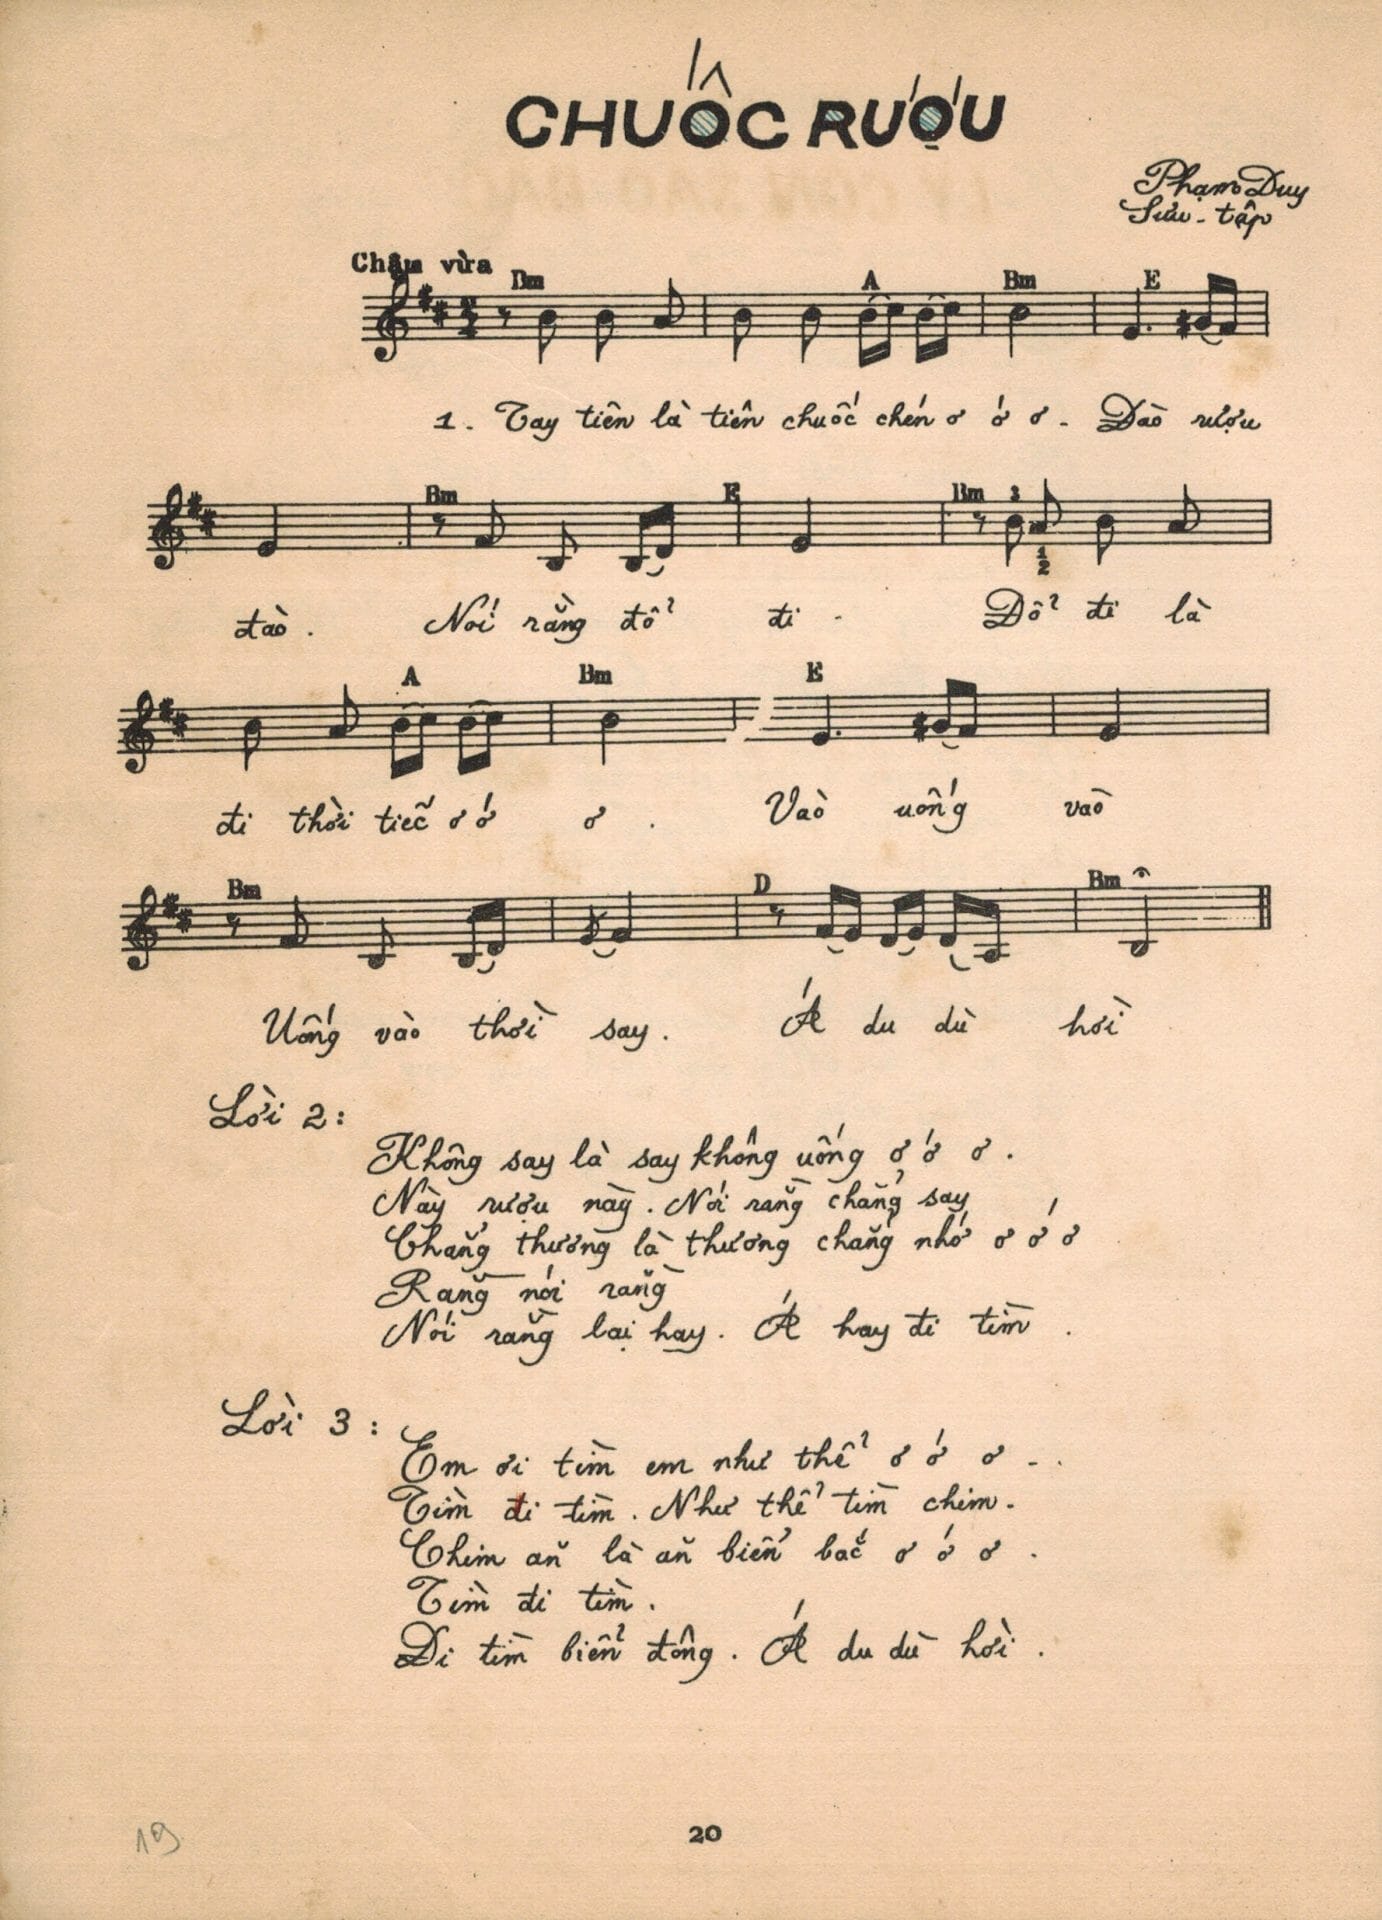 CHUỐC RƯỢU
Phạm Duy
Sưu - tập
Chậm vừa
Bm A Bm E
1. Tay tiên là tiên chuốc chén ơ ớ ơ - Đào rượu
Bm E Bm 3
1
2
đào. Nói rằng đổ đi - Đổ đi là
A Bm E
đi thời tiếc ơ ớ ơ. Vào uống vào
Bm D Bm
Uống vào thời say. Á du dù hời
Lời 2:
Không say là say không uống ơ ớ ơ.
Này rượu này. Nói rằng chẳng say
Chẳng thương là thương chẳng nhớ ơ ớ ơ
Rằng nói rằng
Nói rằng lại hay. Á hay đi tìm.
Lời 3:
Em ơi tìm em như thể ơ ớ ơ - .
Tìm đi tìm. Như thể tìm chim.
Chim ăn là ăn biển bắc ơ ớ ơ.
Tìm đi tìm.
Đi tìm biển đông. Á du dù hời.
20
19